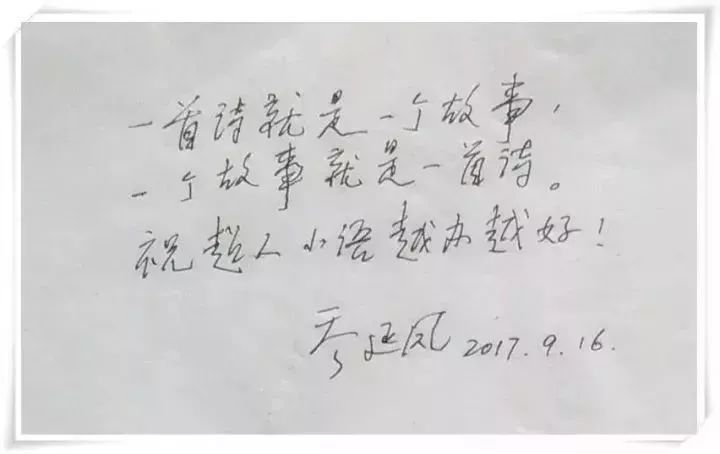 一首诗就是一个故事，
一个故事就是一首诗。
祝超人小语越办越好！
延风 2017.9.16.